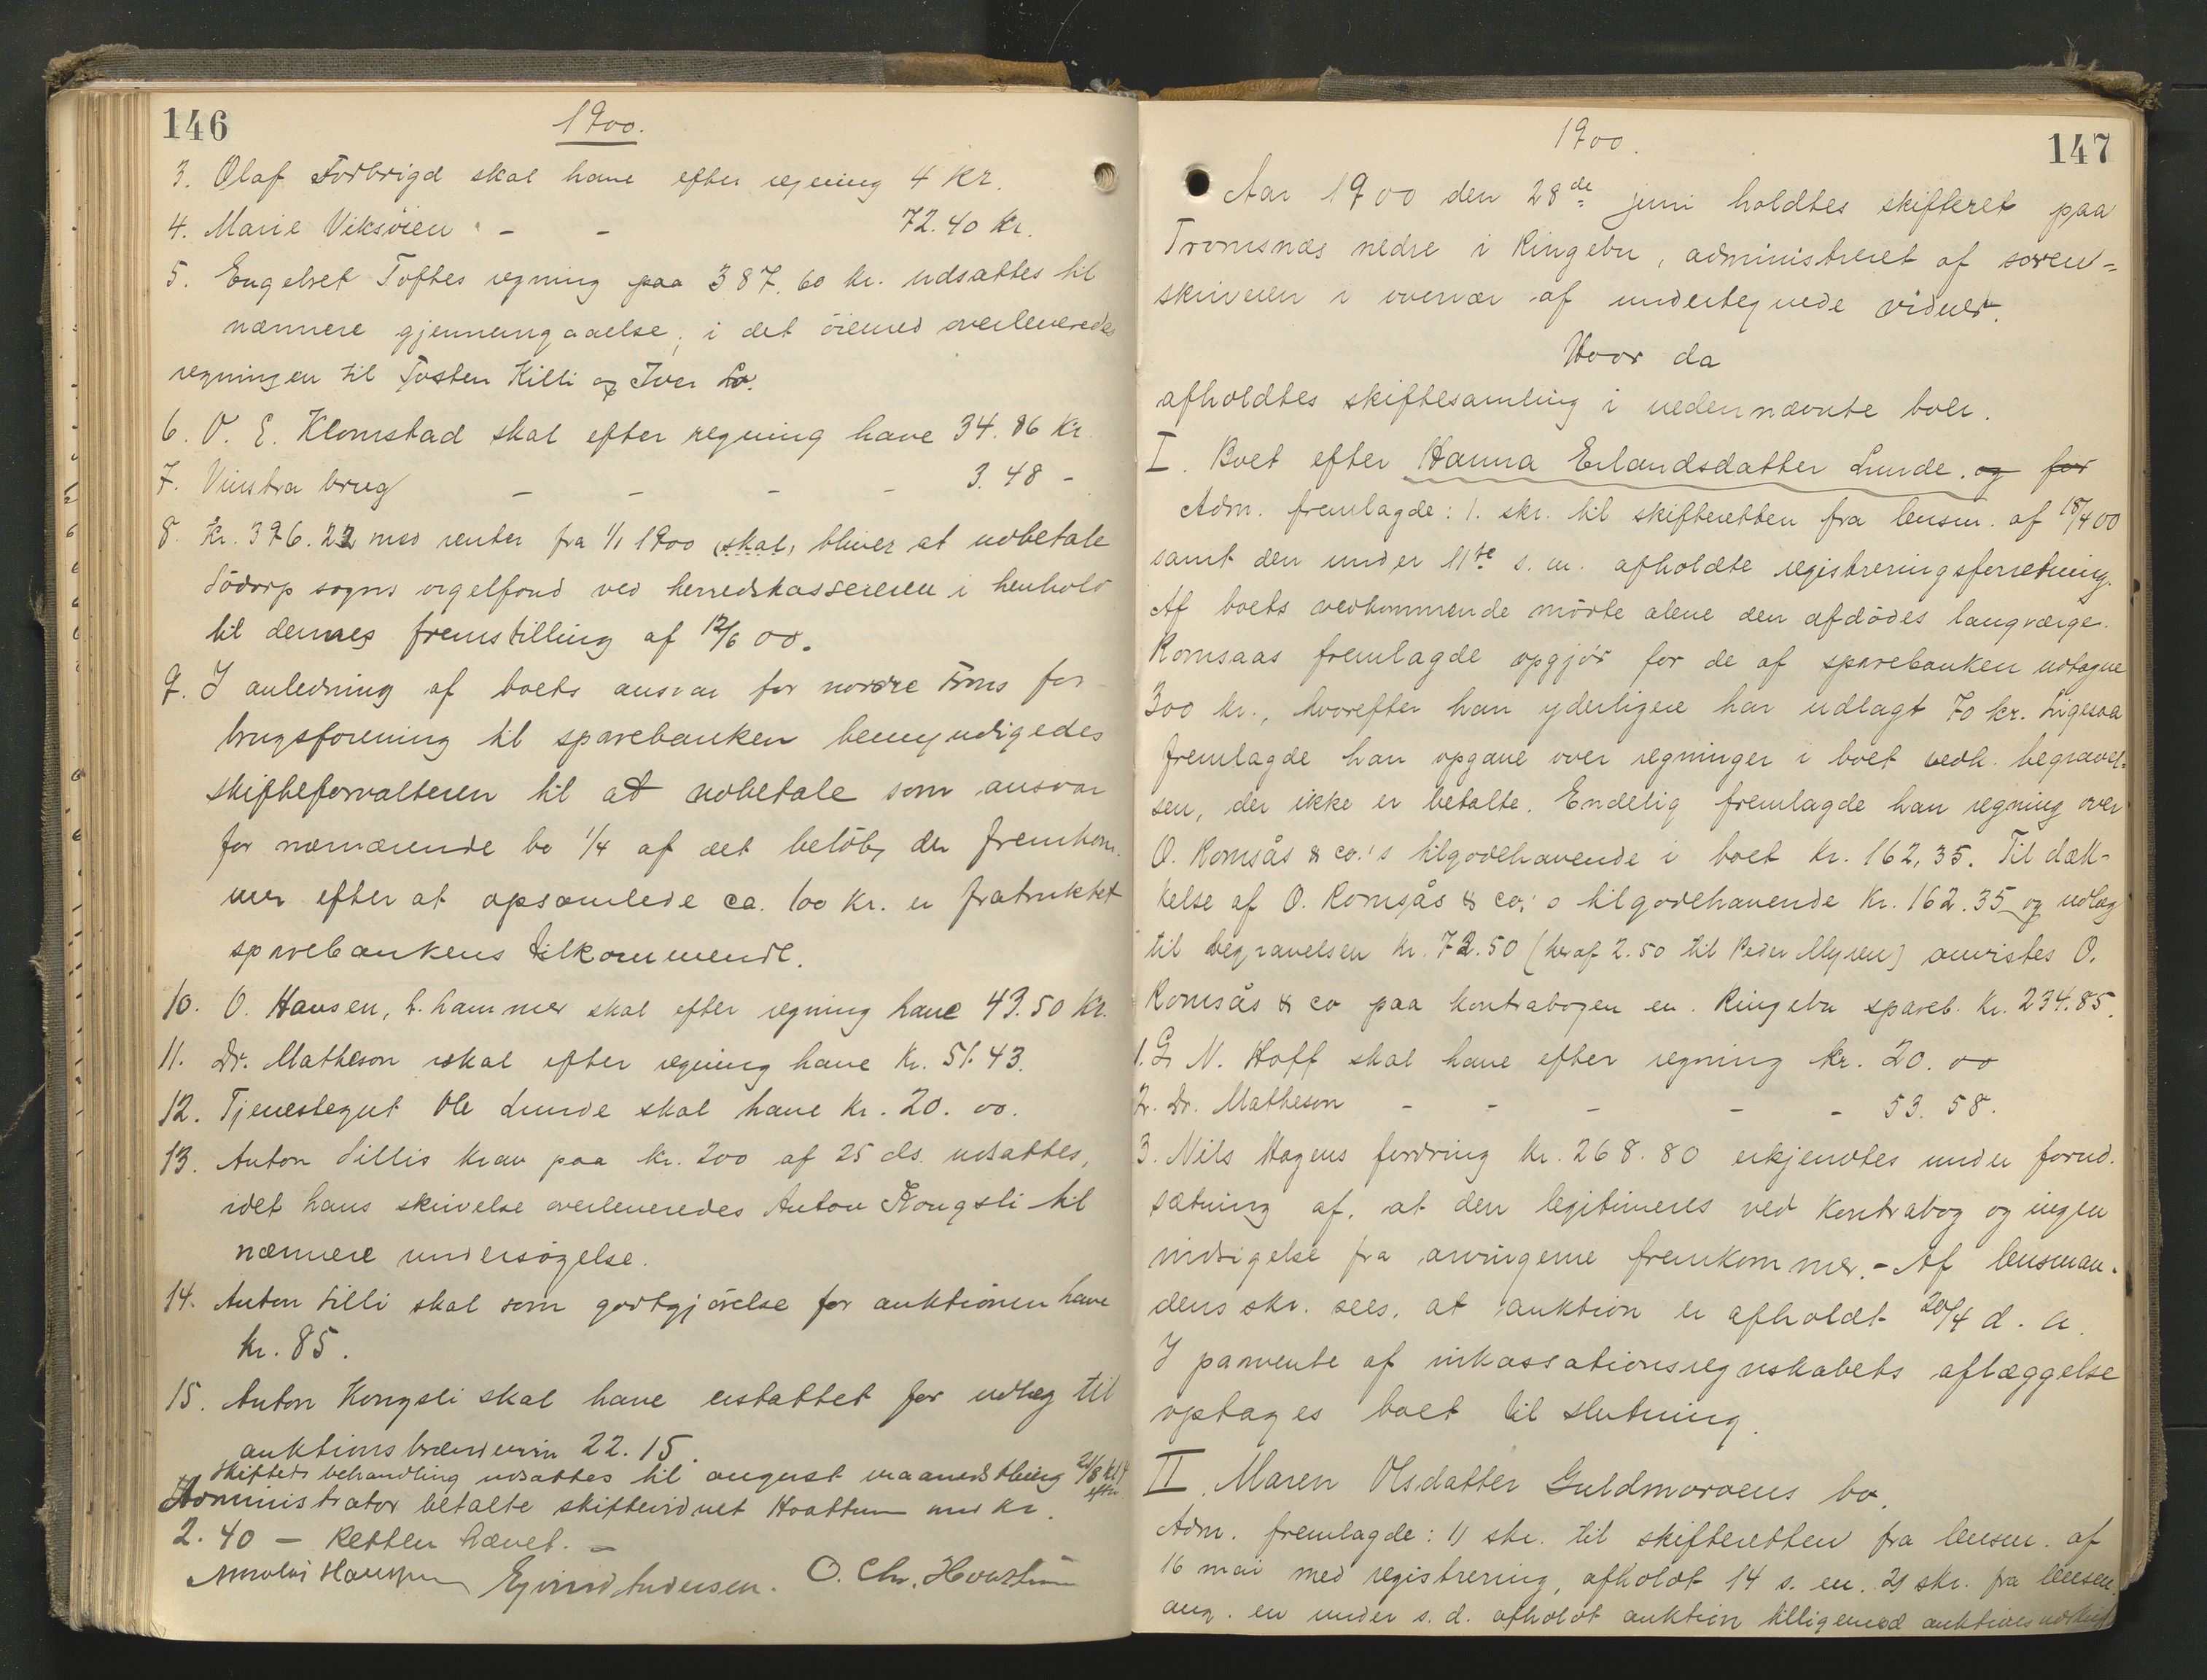 146
1900.
3. Olaf Forbrigd skal have efter regning 4 kr.
4. Marie Viksøien - - 72.40 kr.
5. Engebret Toftes regning paa 387.60 kr. udsattes til
nærmere gjennemgaaelse; i det øiemed overleveredes
regningen til Tosten Killi og Iver Lo.
6. O. E. Klomstad skal efter regning have 34.86 kr.
7. Vinstra brug - - - - 3.48 -
8. Kr. 376.22 med renter fra 1/1 1900 skal, bliver at udbetale
Sødorp sogns orgelfond ved herredskassereren i henhold
til dennes fremstilling af 12/6 00.
9. I anledning af boets ansvar for nordre Frons for-
brugsforening til sparebanken bemyndigedes
skifteforvalteren til at udbetale som ansvar
for nærværende bo 1/4 af det beløb, der fremkom-
mer efter at opsamlede ca. 100 kr. er fratrukket
sparebankens tilkommende.
10. O. Hansen, L.hammer skal efter regning have 43.50 kr.
11. Dr. Matheson skal efter regning have kr. 51.43.
12. Tjenestegut Ole Lunde skal have kr. 20.00.
13. Anton Sillis krav paa kr. 200 af 25 ds. udsattes,
idet hans skrivelse overleveredes Anton Kongsli til
nærmere undersøgelse.
14. Anton Silli skal som godtgjørelse for auktionen have
kr. 85.
15. Anton Kongsli skal have erstattet for udlæg til
auktionsbrændevin 22.15.
Skiftets behandling udsattes til august maanedsthing 21/8 kl 4
eftm.
Administrator betalte skiftevidnet Hovattum med kr.
2.40 — Retten hævet. —
Nicolai Hansen Eyvind Andersen. O. Chr. Hovattum
147
1900.
Aar 1900 den 28de juni holdtes skifteret paa
Tromsnæs nedre i Ringebu, administreret af soren-
skriveren i overvær af undertegnede vidner.
Hvor da
afholdtes skiftesamling i nedennævnte boer.
I. Boet efter Hanna Erlandsdatter Lunde. og for
Adm. fremlagde: 1. skr. til skifteretten fra lensm. af 18/4 00
samt den under 11te s. m. afholdte registreringsforretning.
Af boets vedkommende mødte alene den afdødes laugværge.
Romsaas fremlagde opgjør for de af sparebanken udtagne
300 kr., hvorefter han yderligere har udlagt 70 kr. Ligesaa
fremlagde han opgave over regninger i boet vedk. begravel-
sen, der ikke er betalte. Endelig fremlagde han regning over
O. Romsås & co.'s tilgodehavende i boet kr. 162,35. Til dæk-
kelse af O. Romsås & co.'s tilgodehavende kr. 162.35 og udlæg
til begravelsen kr. 72.50 (heraf 2.50 til Peder Myren) anvistes O.
Romsås & co paa kontrabogen en. Ringebu spareb. kr. 234.85.
1. G. N. Hoff skal have efter regning kr. 20.00
2. Dr. Matheson - - - - - 53.58.
3. Nils Hagens fordring kr. 268.80 erkjendtes under forud-
sætning af, at den legitimeres ved kontrabog og ingen
indsigelse fra arvingerne fremkommer. - Af lensman-
dens skr. sees, at auktion er afholdt 20/4 d. a.
I paavente af inkassationsregnskabets aflæggelse
optages boet til slutning.
II. Maren Olsdatter Guldmoroens bo.
Adm. fremlagde: 1) skr. til skifteretten fra lensm. af
16 mai med registrering, afholdt 14 s. m. 2) skr. fra lensm.
ang. en under s. d. afholdt auktion tilligemed auktionsudskrift